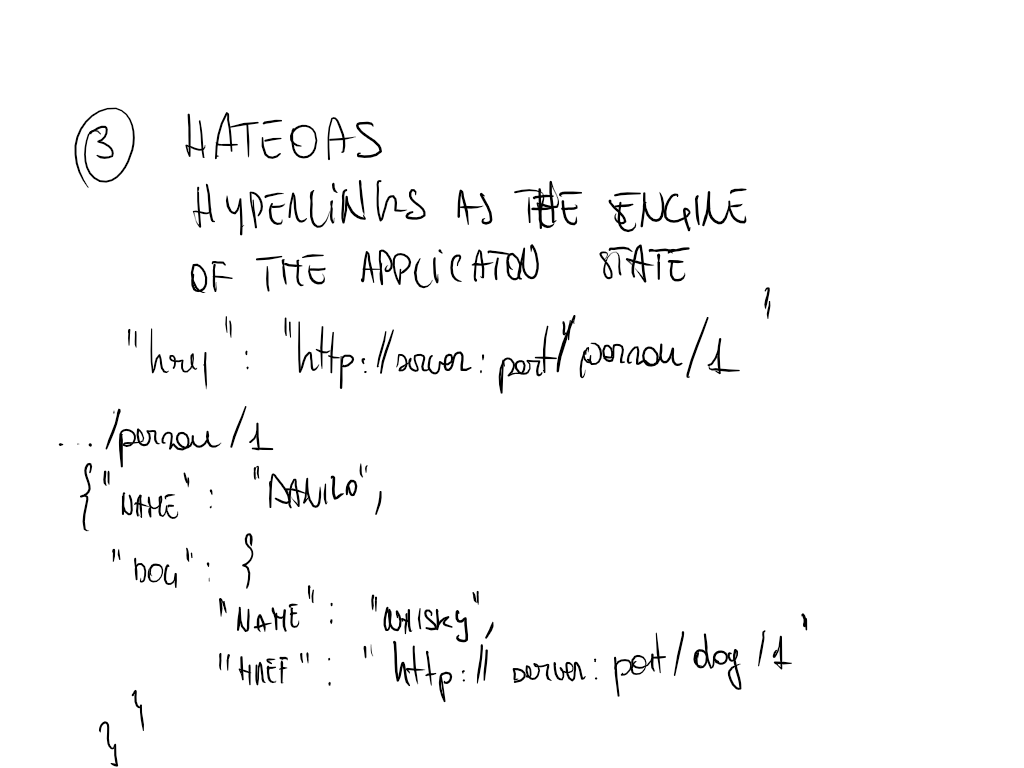 3 HATEOAS
HYPERLINKS AS THE ENGINE
OF THE APPLICATON STATE
"href": "http://server:port/person/1"
.../person/1
{"NAME": "DANILO",
"DOG": {
"NAME": "WHISKY",
"HREF": "http://server:port/dog/1"
}
}